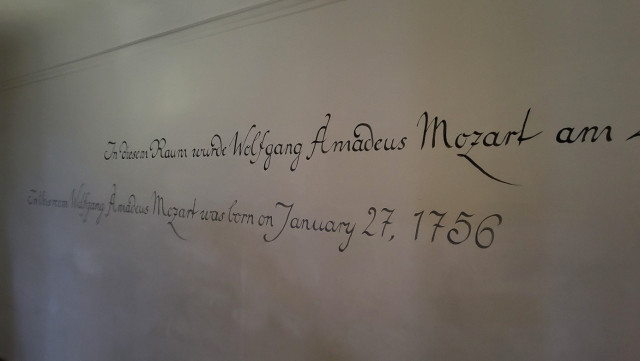 In diesem Raum wurde Wolfgang Amadeus Mozart am
In this room Wolfgang Amadeus Mozart was born on January 27, 1756